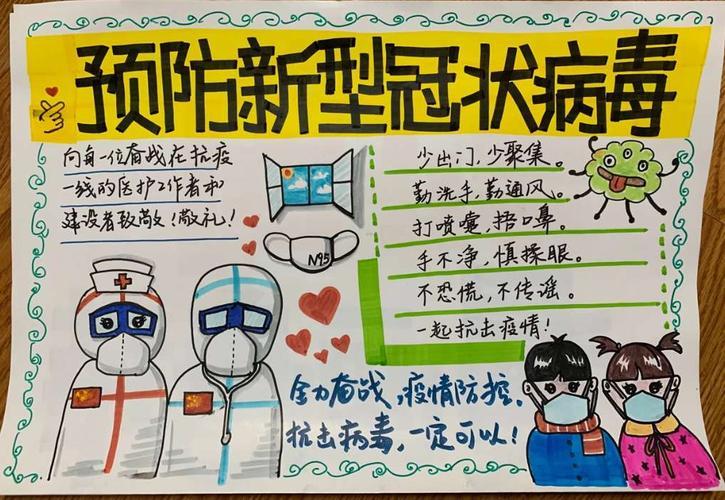 预防新型冠状病毒
向每一位奋战在抗疫
一线的医护工作者和
建设者致敬！敬礼！
N95
少出门，少聚集。
勤洗手，勤通风。
打喷嚏，捂口鼻。
手不净，慎揉眼。
不恐慌，不传谣。
一起抗击疫情！
全力奋战，疫情防控，
抗击病毒，一定可以！